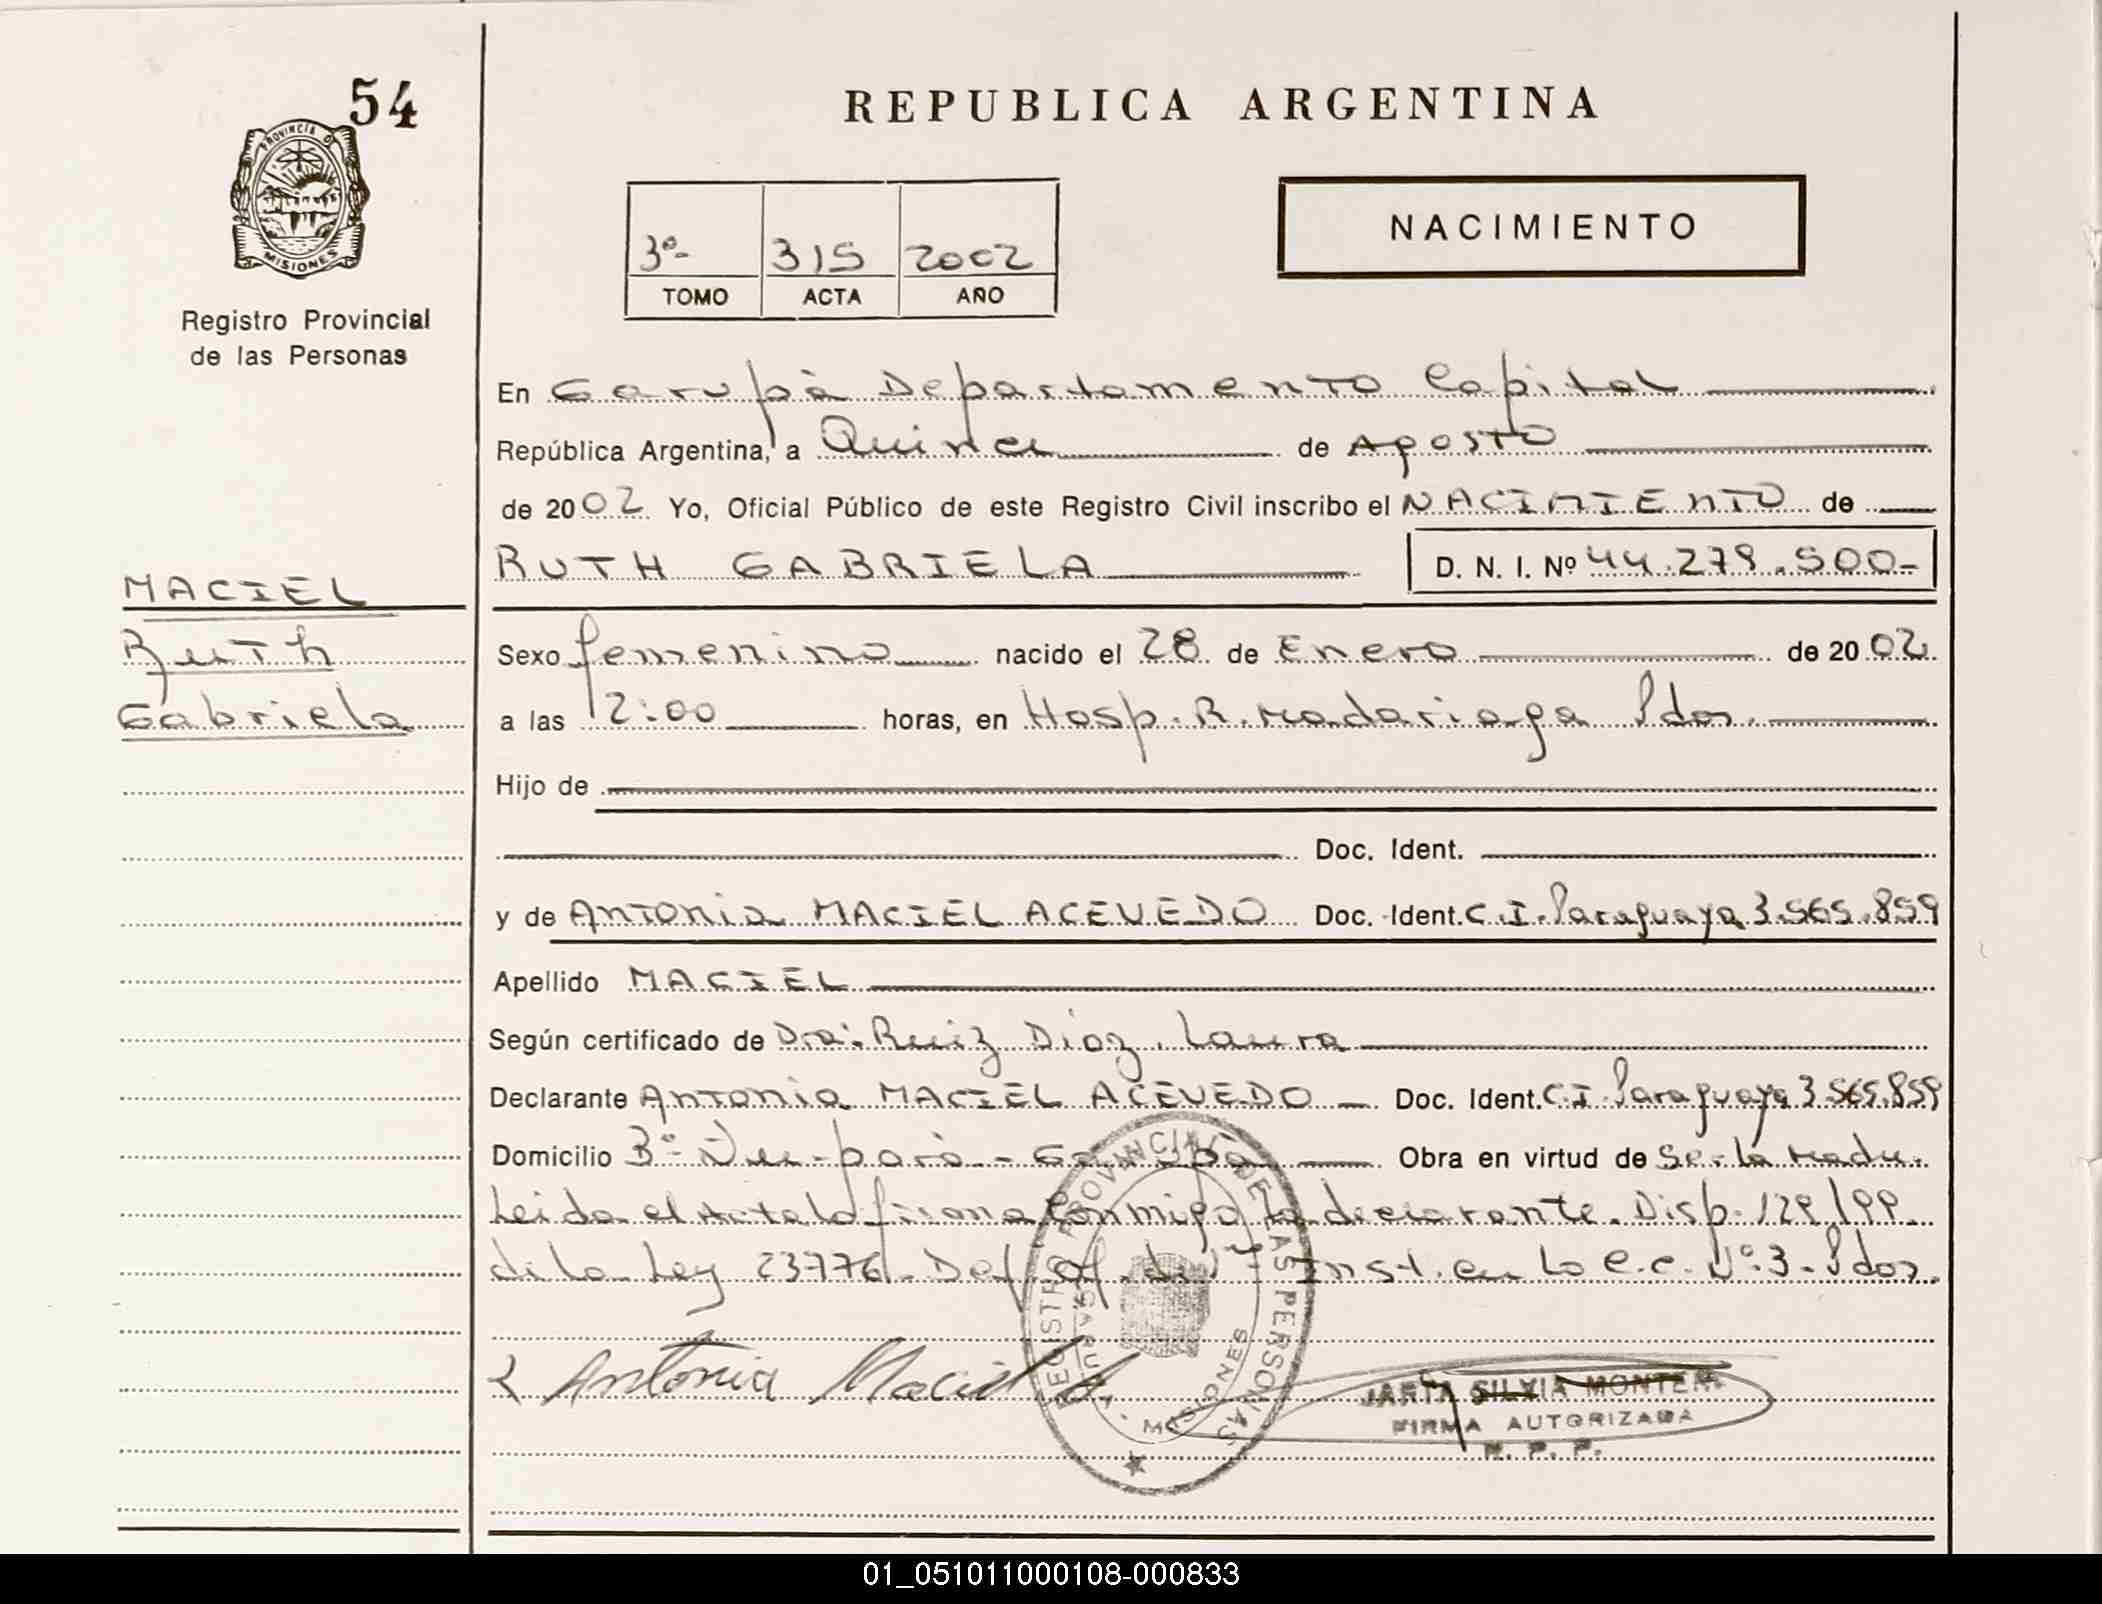 54
PROVINCIA D
MISIONES
Registro Provincial
de las Personas
REPUBLICA ARGENTINA
3º- 315 2002
TOMO ACTA AÑO
NACIMIENTO
En Garupà Departamento Capital
República Argentina, a Quince de Agosto
de 2002 Yo, Oficial Público de este Registro Civil inscribo el NACIMIENTO de
RUTH GABRIELA D. N. I. Nº 44.279.500-
MACIEL
Ruth
Gabriela
Sexo femenino nacido el 28 de Enero de 2002
a las 12:00 horas, en Hosp. R. Madariaga Pdas.
Hijo de
Doc. Ident.
y de Antonia MACIEL ACEVEDO Doc. Ident. C.I. Paraguaya 3.565.859
Apellido MACIEL
Según certificado de Dra. Ruiz Diaz, Laura
Declarante Antonia MACIEL ACEVEDO Doc. Ident. C.I. Paraguaya 3.565.859
Domicilio Bº Ñu-porà - Garupà Obra en virtud de Ser la Madre.
Leida el Acta la firma conmigo la declarante. Disp. 129/99
de la Ley 23776. Def. Inst. en la Nº 3. Pdas.
Antonia Maciel A
REGISTRO PROVINCIAL DE LAS PERSONAS
GARUPA - MISIONES
SILVIA
FIRMA AUTORIZADA
R. P. P.
01_051011000108-000833